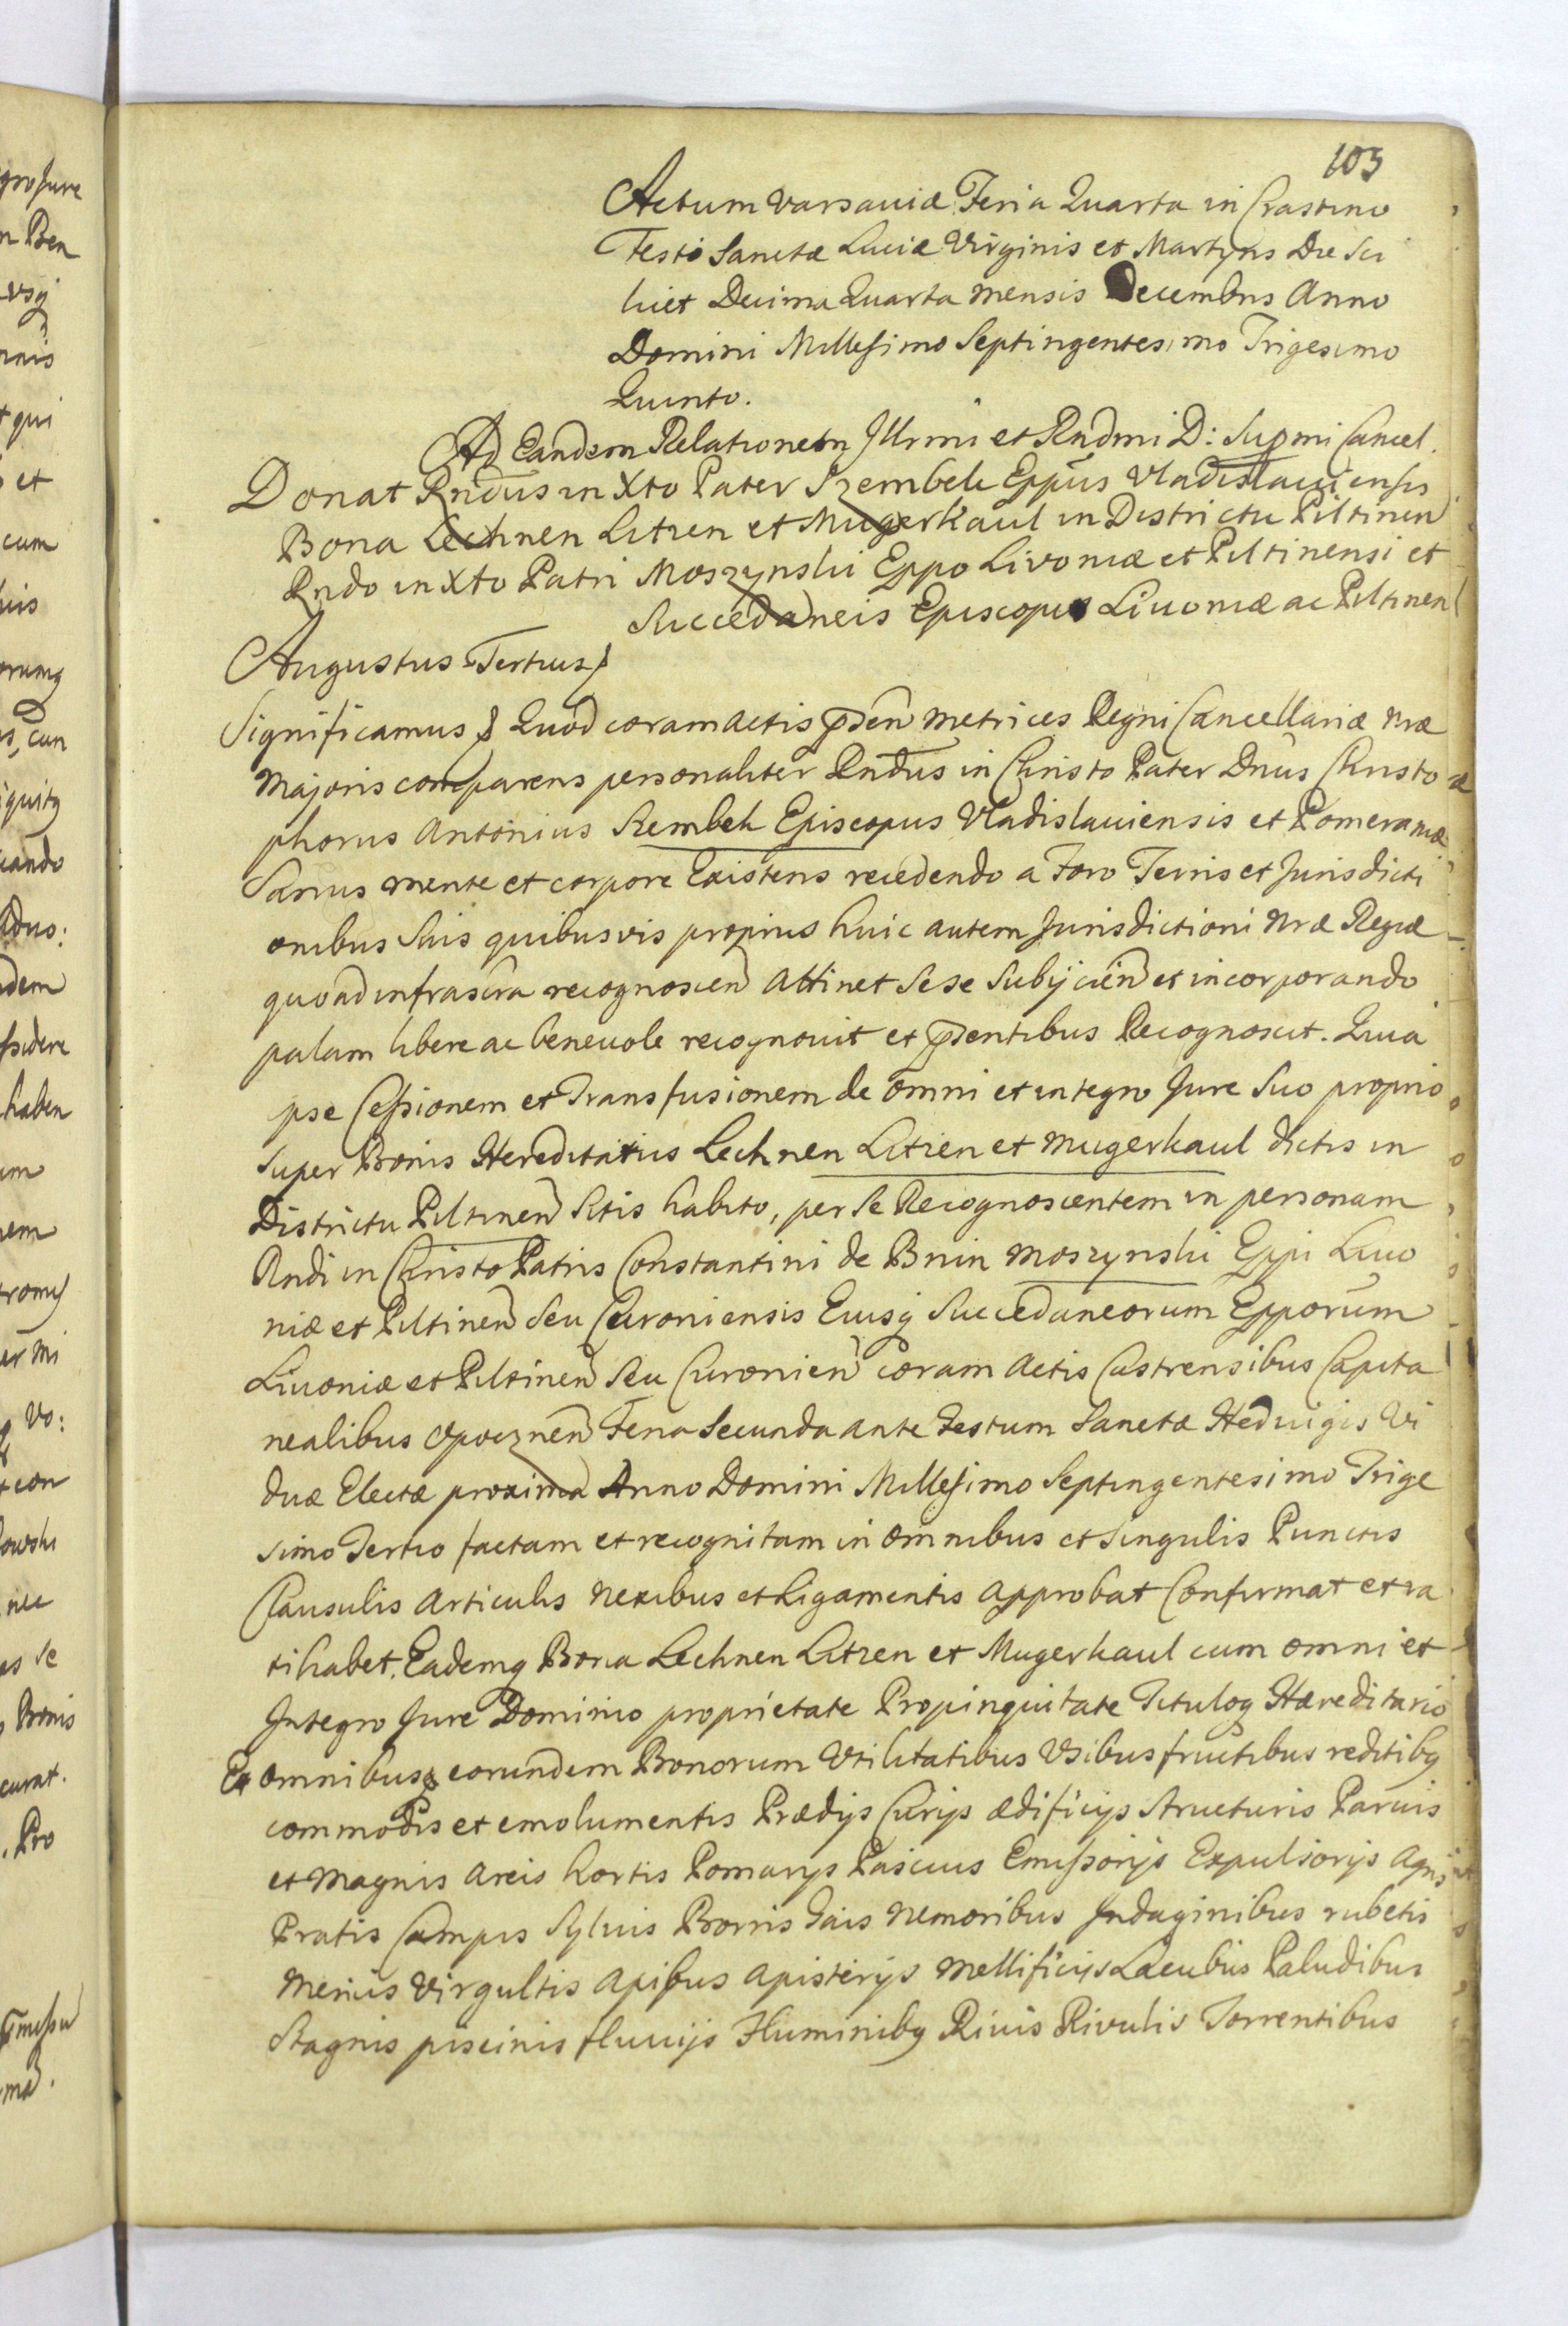 103
Actum Varsaviæ Feria Quarta in Crastino
Festi Sanctæ Luciæ Virginis et Martyris Die Sci
licet Decima Quarta mensis Decembris Anno
Domini Millesimo Septingentesimo Trigesimo
Quinto.
Ad Eandem Relationem Illrmi et Rndmi D: Supmi Cancel.
Donat Rndus in Xto Pater Szembek Eppus Vladislaviensis
Bona Lechnen Litzen et Mugerkaul in Districtu Piltinen
Rndo in Xto Patri Moszynski Eppo Livoniæ et Piltinensi et
Succedaneis Episcopis Livoniæ ac Piltinen
Augustus Tertius
Significamus Quod coram Actis psen Metrices Regni Cancellariæ Nræ
Majoris comparens personaliter Rndus in Christo Pater Dnus Christo
phorus Antonius Szembek Episcopus Vladislaviensis et Pomeraniæ
Sanus mente et corpore Existens recedendo a Foro Terris et Jurisdicti
onibus Suis quibusvis proprius huic autem Jurisdictioni Nræ Regiæ
quo ad infrascra recognoscen attinet Sese Subijcien et incorporando
palam libere ac benevole recognovit et psentibus Recognoscit. Quia
ipse Cessionem et Transfusionem de omni et integro Jure Suo proprio
Super Bonis Hereditariis Lechnen Litzen et Mugerkaul dictis in
Districtu Piltinen Sitis habito, per Se Recognoscentem in personam
Rndi in Christo Patris Constantini de Bnin Moszynski Eppi Livo
niæ et Piltinen Seu Curoniensis Eiusq Succedaneorum Epporum
Livoniæ et Piltinen Seu Curonien coram Actis Castrensibus Capita
nealibus Opocznen Feria Secunda ante Festum Sanctæ Hedvigis Vi
duæ Electæ proxima Anno Domini Millesimo Septingentesimo Trige
simo Tertio factam et recognitam in omnibus et Singulis Punctis
Clausulis Articulis Nexibus et Ligamentis approbat Confirmat et ra
tihabet, Eademq Bona Lechnen Litzen et Mugerkaul cum omni et
Integro Jure Dominio proprietate Propinquitate Tituloq Hæreditario
Ex omnibusq eorundem Bonorum Utilitatibus Usibus fructibus reditibq
commodis et emolumentis Prædijs Curijs ædificijs Structuris Parvis
et Magnis Areis hortis Pomarijs Pascuis Emissorijs Expulsorijs Agris
Pratis Campis Sylvis Borris Gais Nemoribus Indaginibus rubetis
Mericis Virgultis Apibus Apisterijs Mellificijs Lacubus Paludibus
Stagnis piscinis fluvijs Fluminibq Rivis Rivulis Torrentibus